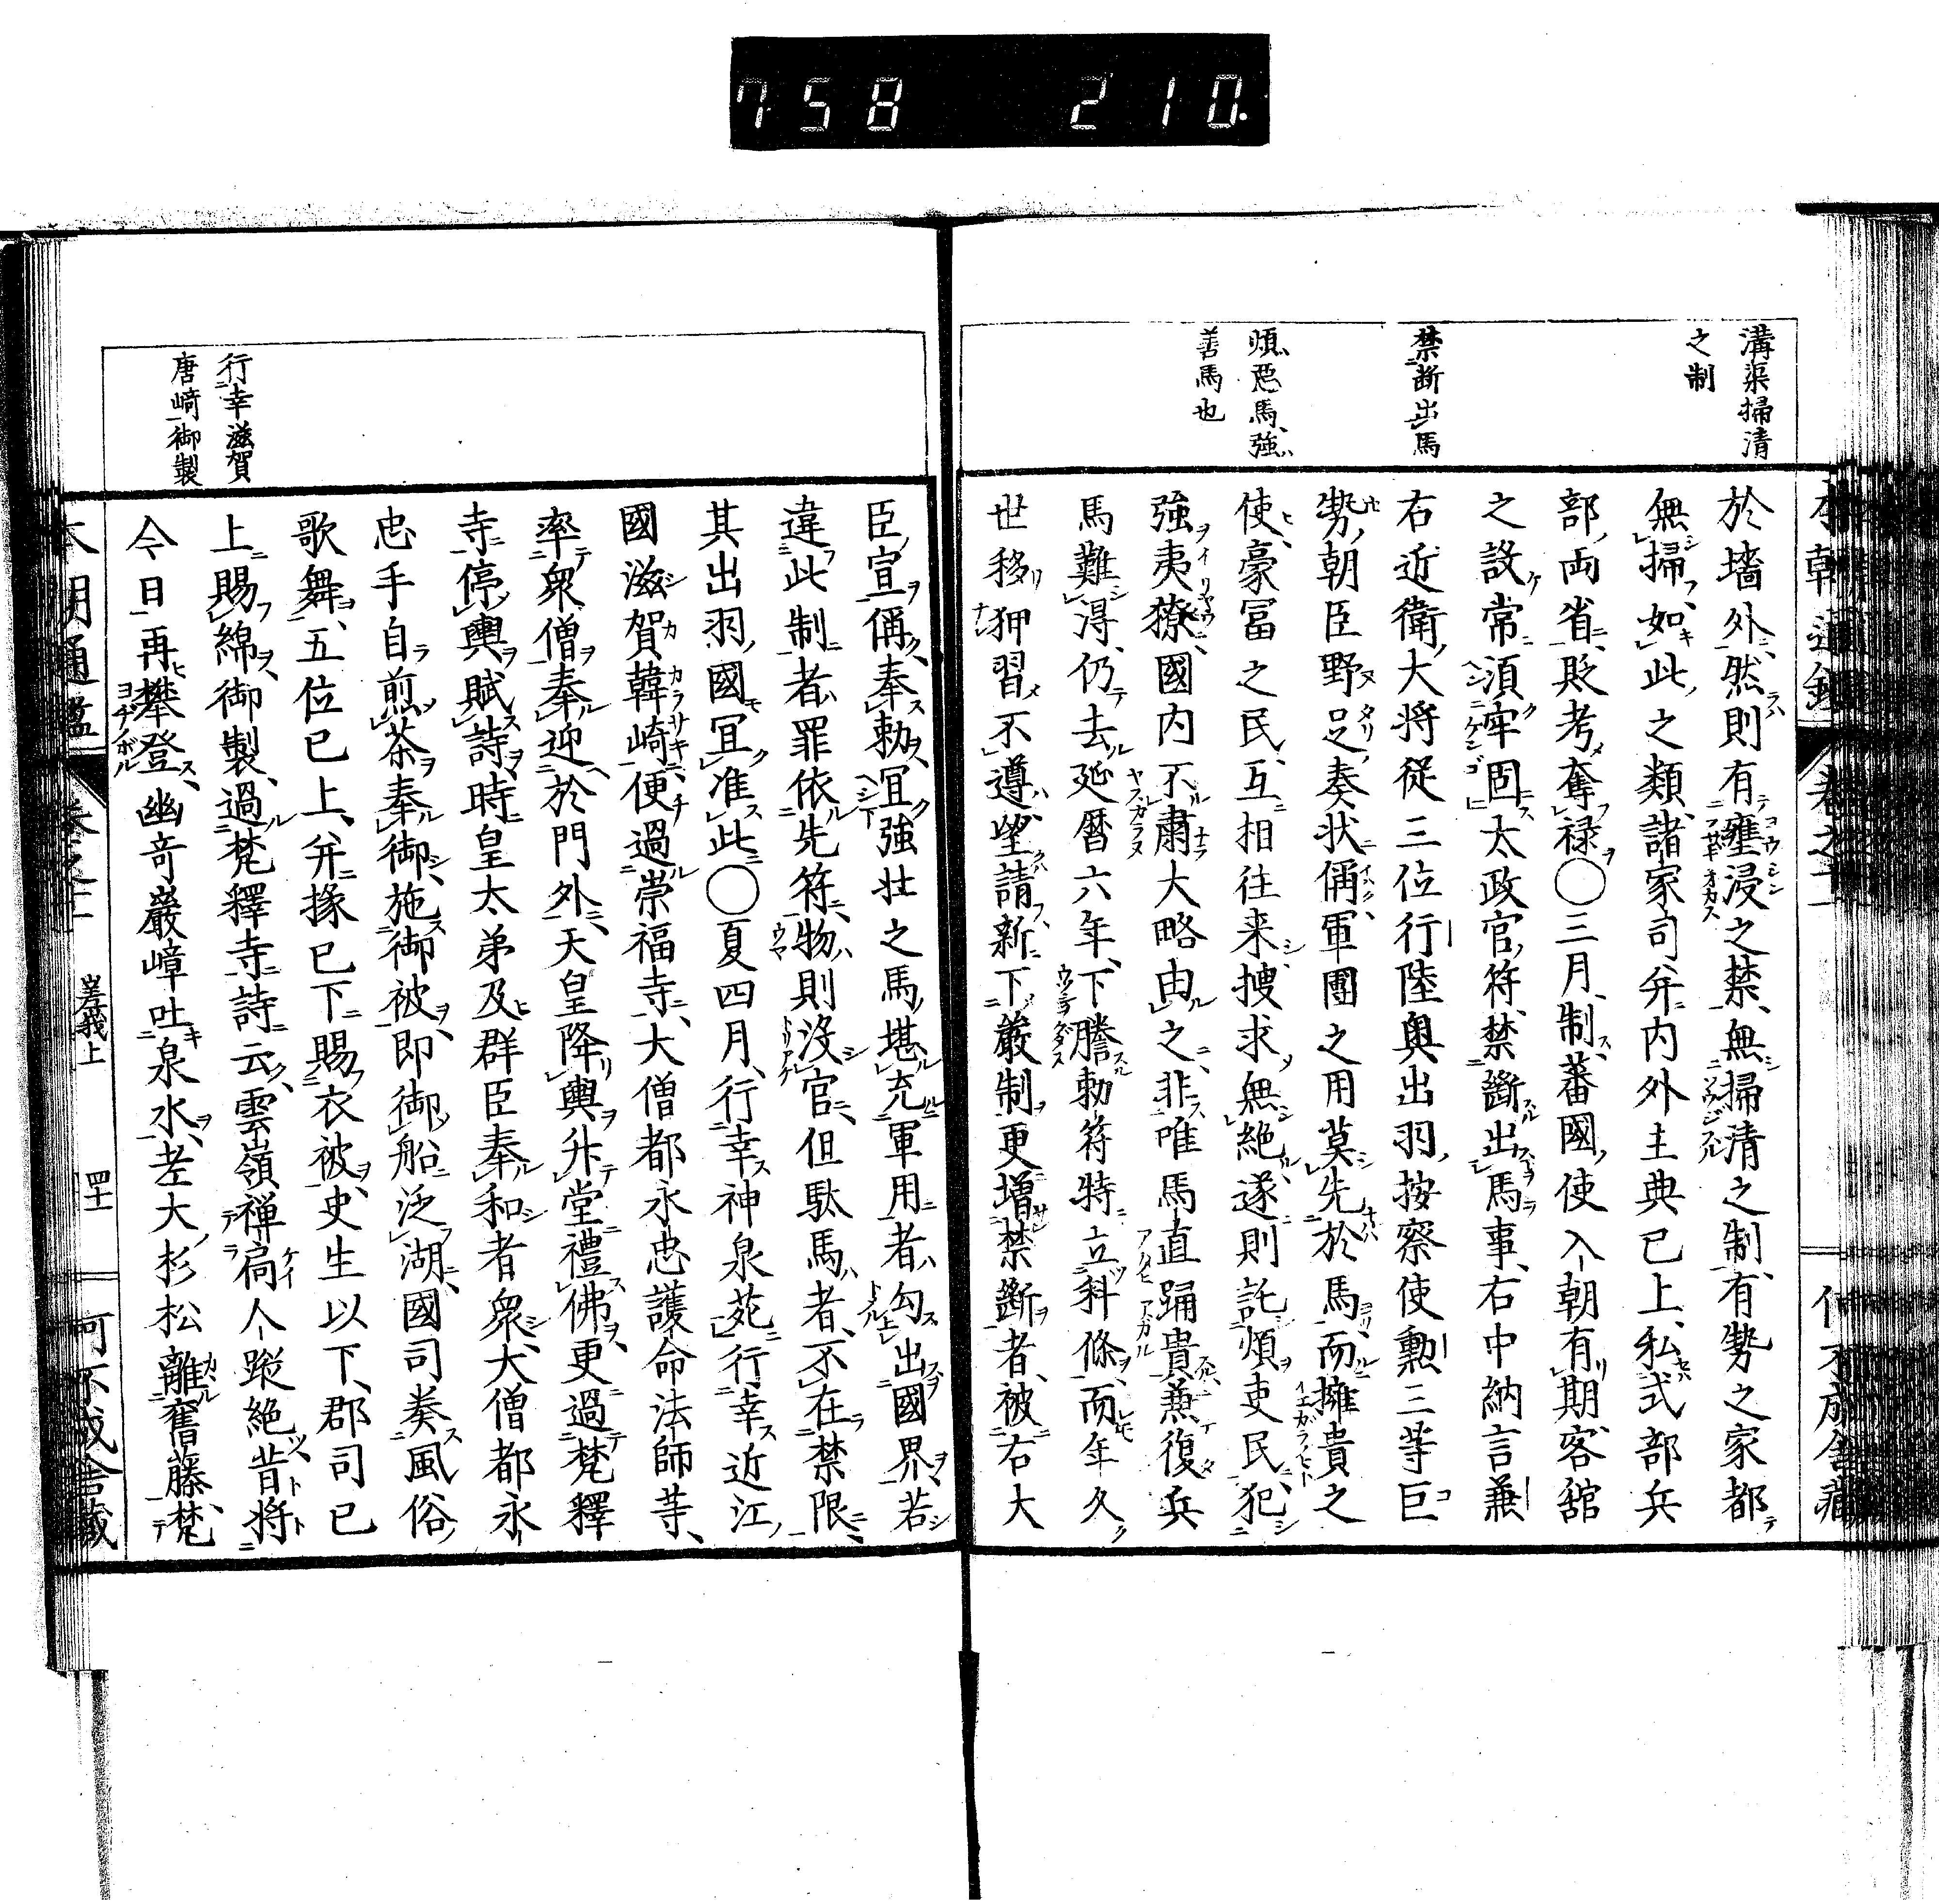 758 210.
溝渠掃清
之制
禁断出馬
煩惡馬強
善馬也
於墻外、然則有壅浸之禁、無掃清之制、有勢之家都
無掃如此之類、諸家司并内外主典已上、私式部兵
部両省、貶考奪禄〇三月、制蕃國使入朝有期、客舘
之設、常須牢固、太政官符、禁斷出馬事、右中納言兼
右近衛大将従三位行陸奥出羽按察使勲三等巨
勢朝臣野足奏状偁、軍團之用莫先於馬、而擁貴之
使、豪冨之民、互相往来、捜求無絶、遂則託煩吏民、犯
強夷獠、國内不肅、大略由之、非唯馬直踊貴、兼復兵
馬難得、仍去延暦六年、下騰勅符、特立科條、而年久
世移、狎習不遵、望請新下嚴制、更増禁斷者、被右大
臣宣偁、奉勅、冝強壮之馬、堪充軍用者、勾出國界、若
違此制者、罪依先符、物則没官、但駄馬者、不在禁限、
其出羽國冝准此〇夏四月、行幸神泉苑、行幸近江
國滋賀韓崎、便過崇福寺、大僧都永忠護命法師等、
率衆僧奉迎於門外、天皇降輿、升堂禮佛、更過梵釋
寺、停輿賦詩、時皇太弟及群臣奉和者衆、大僧都永
忠手自煎茶奉御、施御被、即御船泛湖、國司奏風俗
歌舞、五位已上、并掾已下賜衣被、史生以下、郡司已
上賜綿、御製、過梵釋寺詩云、雲嶺禅扃人蹤絶、昔将
今日再攀登、幽奇巖嶂吐泉水、老大杉松離舊藤、梵
行幸滋賀
唐﨑御製
嵯峩上